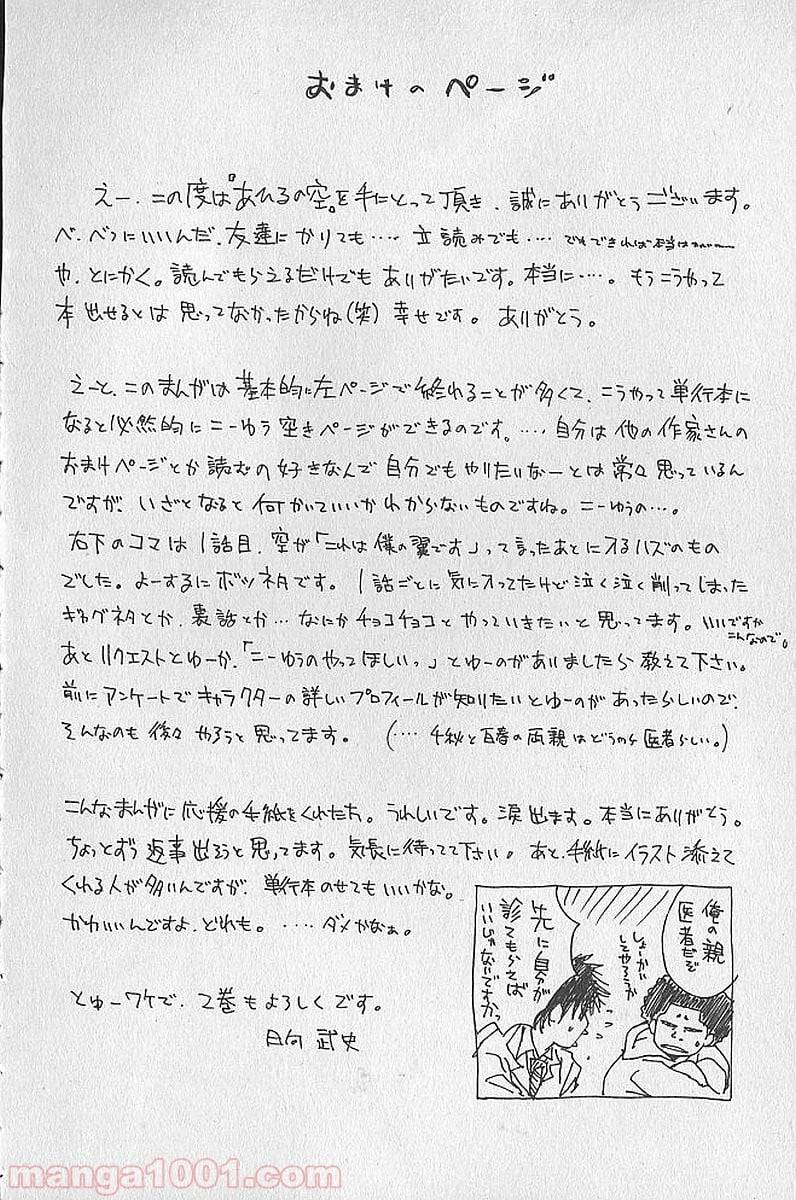 おまけのページ
えー、この度は『あひるの空』を手にとって頂き、誠にありがとうございます。
べ、べつにいいんだ、友達にかりても…‥ 立読みでも…‥ でもできれば本当は………
や、とにかく。読んでもらえるだけでもありがたいです。本当に…‥。もうこうやって
本出せるとは思ってなかったからね(笑)幸せです。ありがとう。
えーと、このまんがは基本的に左ページで終わることが多くて、こうやって単行本に
なると必然的にこーゆう空きページができるのです。…‥自分は他の作家さんの
おまけページとか読むの好きなんで自分でもやりたいなーとは常々思っているん
ですが、いざとなると何かいていいかわからないものですね。こーゆうの…。
右下のコマは1話目、空が「これは僕の翼です」って言ったあとに入るハズのもの
でした。よーするにボツネタです。1話ごとに気に入ってたけど泣く泣く削ってしまった
ギャグネタとか、裏話とか…なにかチョコチョコとやっていきたいと思ってます。いいですか
こんなので。
あとリクエストとゆーか、「こーゆうのやってほしいっ」とゆーのがありましたら教えて下さい。
前にアンケートでキャラクターの詳しいプロフィールが知りたいとゆーのがあったらしいので、
そんなのも後々やろうと思ってます。(…‥千秋と百春の両親はどうやら医者らしい。)
こんなまんがに応援の手紙をくれたち。うれしいです。涙出ます。本当にありがとう。
ちょっとずつ返事出そうと思ってます。気長に待ってて下さい。あと、手紙にイラスト添えて
くれる人が多いんですが、単行本のせてもいいかな。
かわいいんですよ、どれも。…‥ダメかなぁ。
とゆーワケで、2巻もよろしくです。
日向 武史
俺の親
医者だぞ
しょーかい
してやろうか
先に自分が
診てもらえば
いいじゃないですかっ
manga1001.com